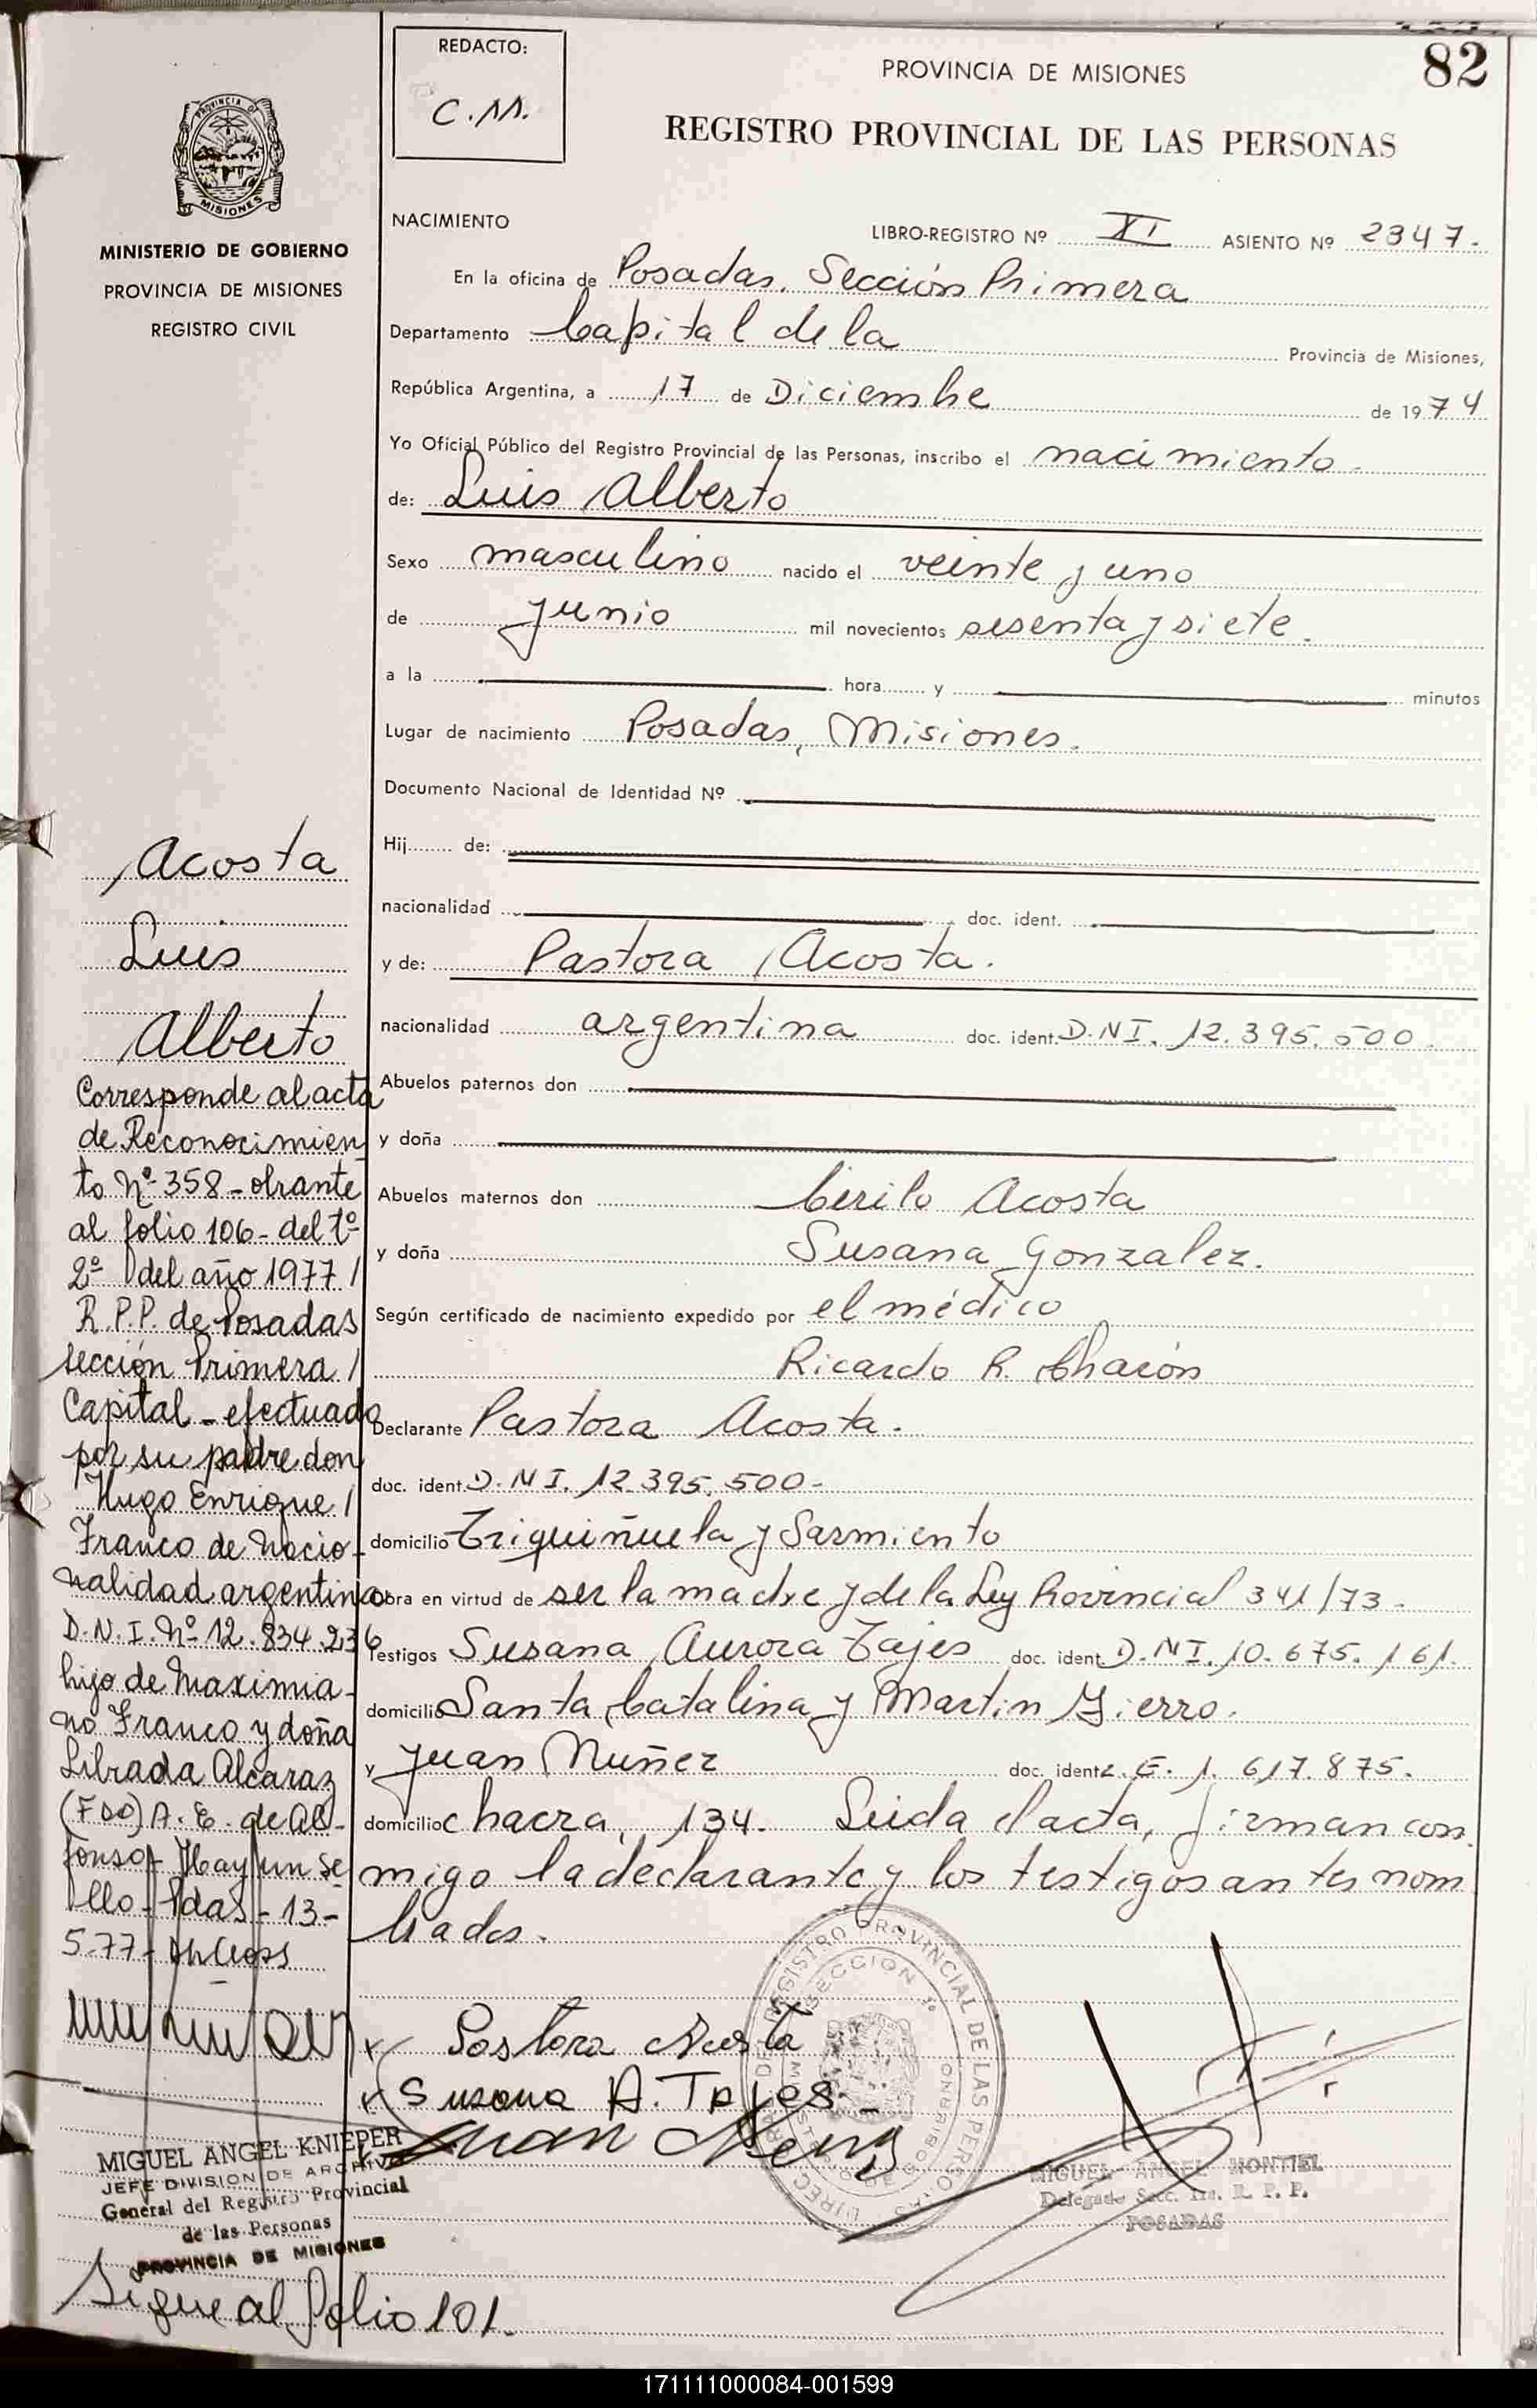 82
REDACTO:
C.M.
PROVINCIA DE MISIONES
REGISTRO PROVINCIAL DE LAS PERSONAS
PROVINCIA DE
MISIONES
MINISTERIO DE GOBIERNO
PROVINCIA DE MISIONES
REGISTRO CIVIL
NACIMIENTO
LIBRO-REGISTRO Nº XI ASIENTO Nº 2347.
En la oficina de Posadas. Sección Primera
Departamento Capital de la Provincia de Misiones,
República Argentina, a 17 de Diciembre de 1974
Yo Oficial Público del Registro Provincial de las Personas, inscribo el nacimiento.
de: Luis Alberto
Sexo masculino nacido el veinte y uno
de junio mil novecientos sesenta y siete.
a la hora y minutos
Lugar de nacimiento Posadas, Misiones.
Documento Nacional de Identidad Nº
Hij de:
nacionalidad doc. ident.
y de: Pastora Acosta.
nacionalidad argentina doc. ident. D.N.I. 12.395.500.
Abuelos paternos don
y doña
Abuelos maternos don Cirilo Acosta
y doña Susana Gonzalez.
Según certificado de nacimiento expedido por el médico
Ricardo R. Chacón
Declarante Pastora Acosta.
doc. ident. D.N.I. 12.395.500-
domicilio Triquiñuela y Sarmiento
Obra en virtud de ser la madre y de la Ley Provincial 341/73.
Testigos Susana Aurora Tajes doc. ident. D.N.I. 10.675.161.
domicilio Santa Catalina y Martin Fierro.
y Juan Nuñez doc. ident. L.E. 1.617.875.
domicilio chacra, 134. Leida el acta, firman con
migo la declarante y los testigos antes nom
brados.
Pastora Acosta
Susana A. Tajes
Juan
MIGUEL ANGEL MONTIEL
Delegado Secc. 1ra. R. P. P.
POSADAS
Acosta
Luis
Alberto
Corresponde al acta
de Reconocimien
to Nº 358 - obrante
al folio 106 - del tº
2º del año 1977/
R.P.P. de Posadas
sección Primera/
Capital - efectuado
por su padre don
Hugo Enrique/
Franco de nacio-
nalidad argentina
D.N.I. Nº 12.834.236
hijo de Maximia-
no Franco y doña
Librada Alcaraz
(FDO) A. E. de Al-
fonso - Hay un se
llo - Pdas - 13-
5-77-
MIGUEL ANGEL KNIEPER
JEFE DIVISION DE ARCHIVO
General del Registro Provincial
de las Personas
PROVINCIA DE MISIONES
Sigue al folio 101.
171111000084-001599